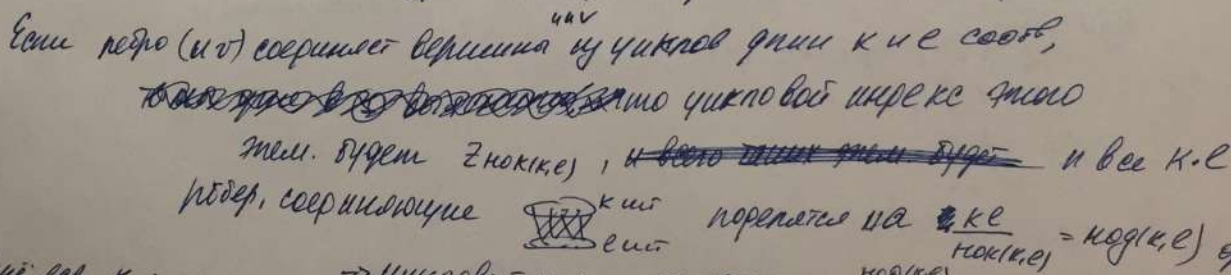 u и v
Если ребро (u v) соединяет вершины из циклов длин k и l соотв,
то цикловой индекс этого
элем. будет Z нок(k,l) , и все k·l
рёбер, соединяющие k шт поделятся на kl / нок(k,l) = нод(k,l)
l шт